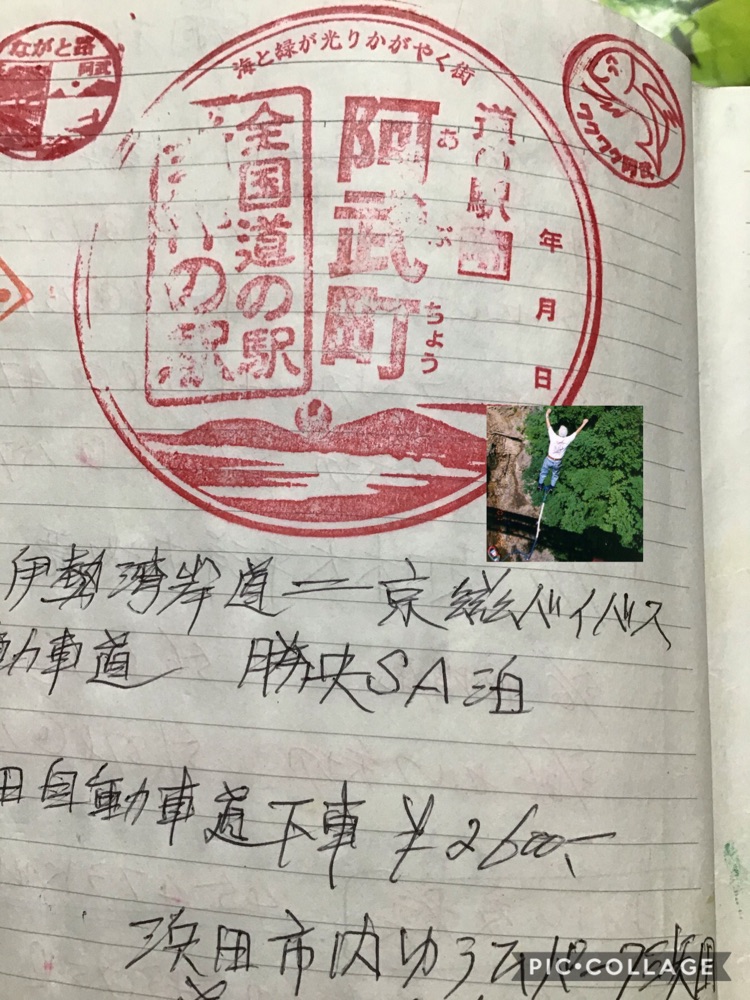 ながと路
阿武
海と緑が光りかがやく街
道の駅
阿武町
あぶちょう
全国道の駅
の駅
年 月 日
ワクワク
伊勢湾岸道＝京滋バイパス
動車道 勝央SA泊
田自動車道下車 ¥2600-
浜田市内ゆうひパーク浜田
PIC•COLLAGE